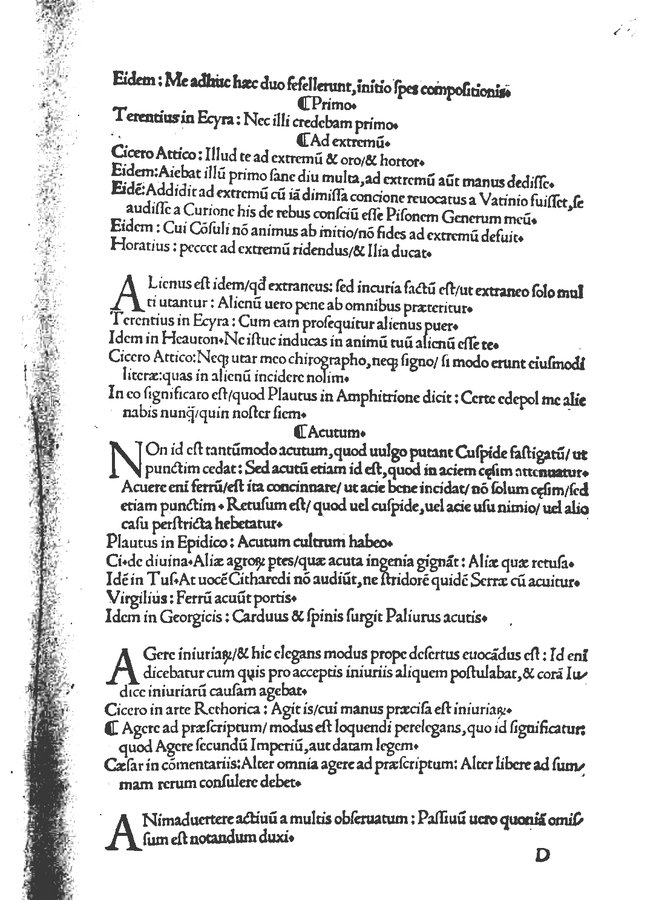 Eidem : Me adhuc hæc duo fefellerunt, initio spes compositionis.
⸿Primo.
Terentius in Ecyra : Nec illi credebam primo.
⸿Ad extremũ.
Cicero Attico : Illud te ad extremũ & oro/& hortor.
Eidem: Aiebat illũ primo sane diu multa, ad extremũ aũt manus dedisse.
Eidẽ: Addidit ad extremũ cũ iã dimissa concione reuocatus a Vatinio fuisset, se
audisse a Curione his de rebus consciũ esse Pisonem Generum meũ.
Eidem : Cui Cõsuli nõ animus ab initio/nõ fides ad extremũ defuit.
Horatius : peccet ad extremũ ridendus/& Ilia ducat.
ALienus est idem/qđ extraneus: sed incuria factũ est/ut extraneo solo mul
ti utantur : Alienũ uero pene ab omnibus præteritur.
Terentius in Ecyra : Cum eam prosequitur alienus puer.
Idem in Heauton. Ne istuc inducas in animũ tuũ alienũ esse te.
Cicero Attico: Neqꝫ utar meo chirographo, neqꝫ signo/ si modo erunt eiusmodi
literæ: quas in alienũ incidere nolim.
In eo significato est/quod Plautus in Amphitrione dicit : Certe edepol me alie
nabis nunq̃/quin noster siem.
⸿Acutum.
NOn id est tantũmodo acutum, quod uulgo putant Cuspide fastigatũ/ ut
punctim cedat : Sed acutũ etiam id est, quod in aciem cęsim attenuatur.
Acuere eni ferrũ/est ita concinnare/ ut acie bene incidat/ nõ solum cęsim/sed
etiam punctim. Retusum est/ quod uel cuspide, uel acie usu nimio/ uel alio
casu perstricta hebetatur.
Plautus in Epidico : Acutum cultrum habeo.
Ci. de diuina. Aliæ agroꝝ ptes/quæ acuta ingenia gignãt : Aliæ quæ retusa.
Idẽ in Tus. At uocẽ Citharedi nõ audiũt, ne stridorẽ quidẽ Serræ cũ acuitur.
Virgilius : Ferrũ acuũt portis.
Idem in Georgicis : Carduus & spinis surgit Paliurus acutis.
AGere iniuriaꝝ/& hic elegans modus prope desertus euocãdus est : Id enĩ
dicebatur cum quis pro acceptis iniuriis aliquem postulabat, & corã Iu
dice iniuriarũ causam agebat.
Cicero in arte Rethorica : Agit is/cui manus præcisa est iniuriaꝝ.
⸿ Agere ad præscriptum/ modus est loquendi perelegans, quo id significatur:
quod Agere secundũ Imperiũ, aut datam legem.
Cæsar in cõmentariis: Alter omnia agere ad præscriptum: Alter libere ad sum
mam rerum consulere debet.
ANimaduertere actiuũ a multis obseruatum : Passiuũ uero quoniã omis
sum est notandum duxi.
D